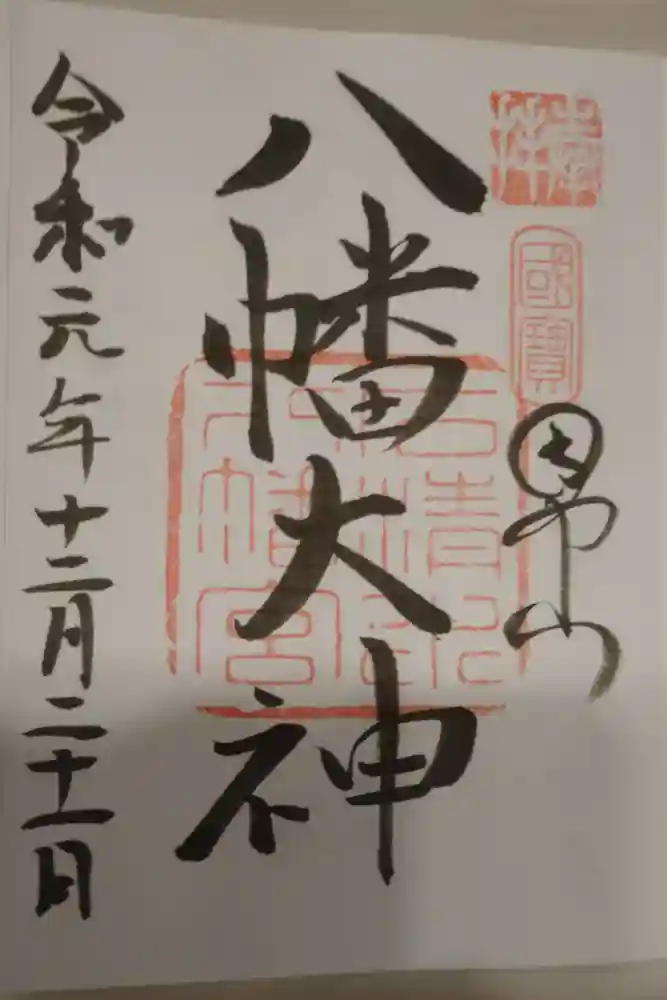 奉拝
國寶
男山
八幡大神
石清水
八幡宮
令和元年十二月二十一日